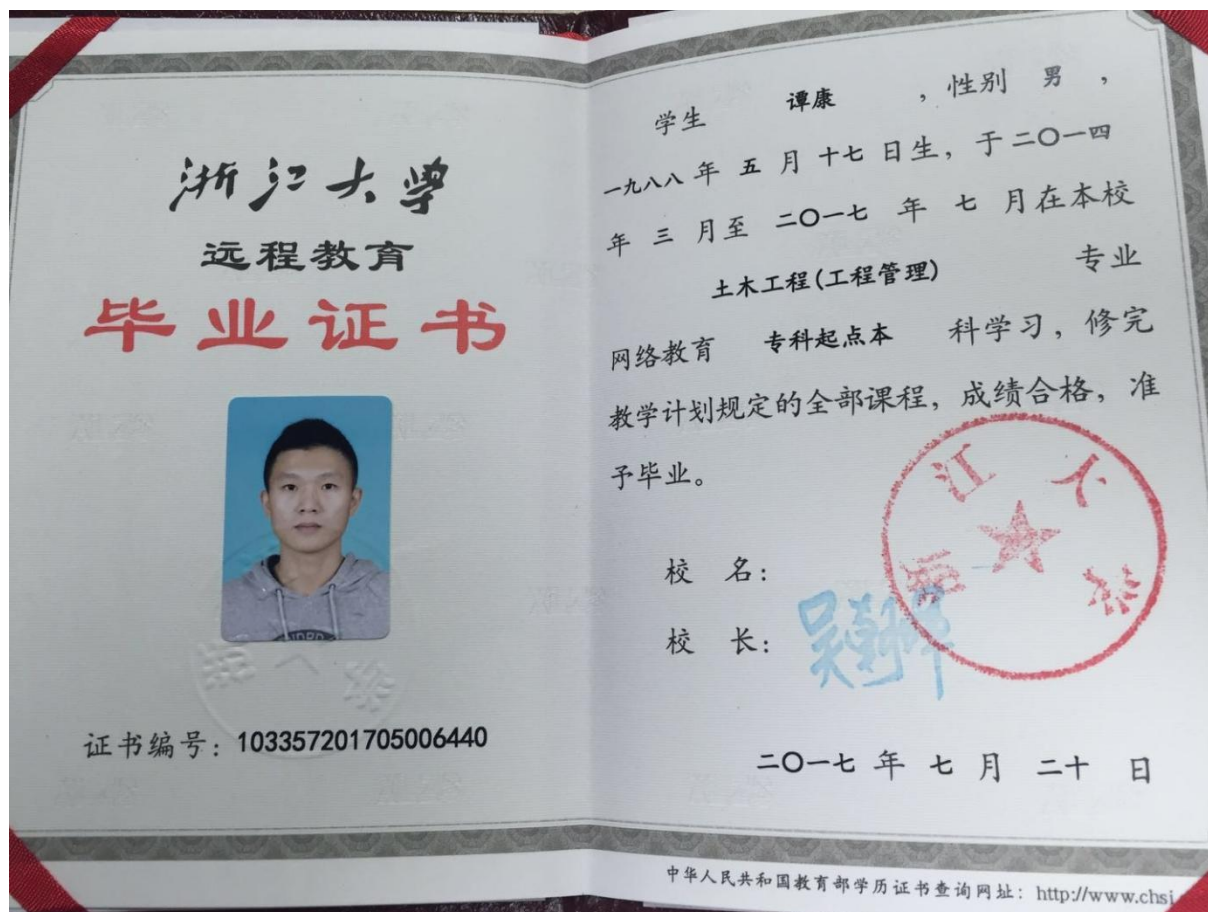 浙江大学
远程教育
毕业证书
证书编号：103357201705006440
学生 谭康 ，性别 男 ，
一九八八 年 五 月 十七 日生，于二〇一四
年 三 月至 二〇一七 年 七 月在本校
土木工程(工程管理) 专业
网络教育 专科起点本 科学习，修完
教学计划规定的全部课程，成绩合格，准
予毕业。
校 名：
校 长：
二〇一七 年 七 月 二十 日
中华人民共和国教育部学历证书查询网址：http://www.chsi.